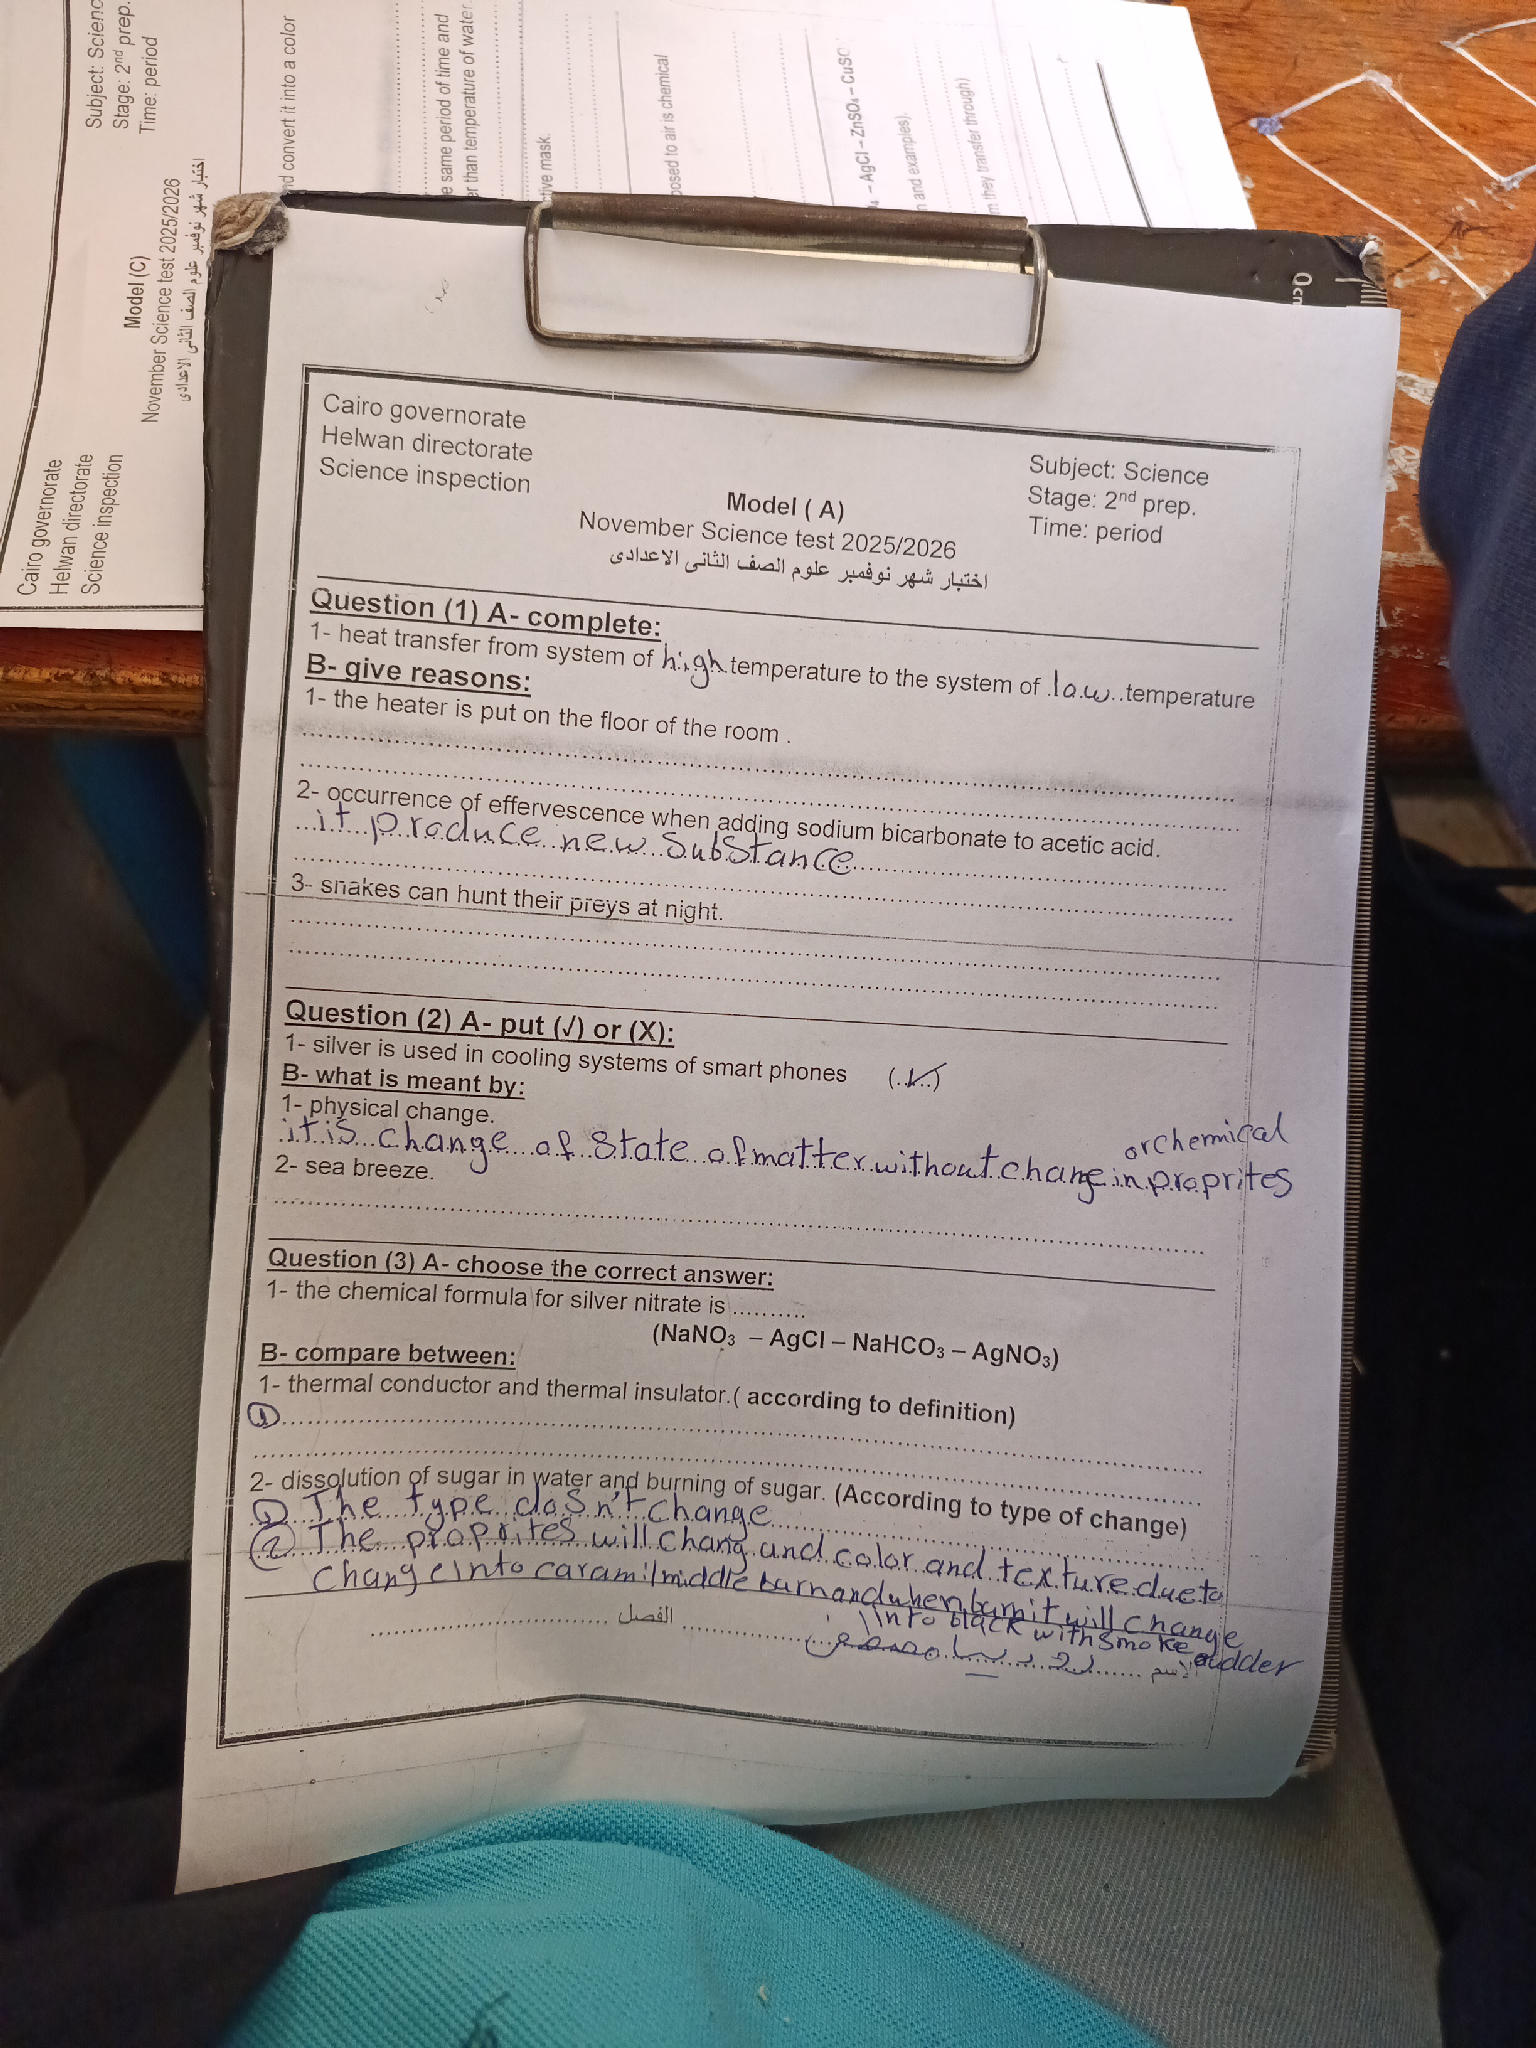 Subject: Scienc
Stage: 2nd prep.
Time: period
Model (C)
November Science test 2025/2026
اختبار شهر نوفمبر علوم الصف الثانى الاعدادى
Cairo governorate
Helwan directorate
Science inspection
nd convert it into a color
e same period of time and
er than temperature of water.
tive mask.
posed to air is chemical
– AgCl – ZnSO₄ – CuSO
n and examples).
m they transfer through)
Cairo governorate
Helwan directorate
Science inspection
Subject: Science
Stage: 2nd prep.
Time: period
Model ( A)
November Science test 2025/2026
اختبار شهر نوفمبر علوم الصف الثانى الاعدادى
Question (1) A- complete:
1- heat transfer from system of high temperature to the system of .law.. temperature
B- give reasons:
1- the heater is put on the floor of the room .
2- occurrence of effervescence when adding sodium bicarbonate to acetic acid.
it produce new substance
3- snakes can hunt their preys at night.
Question (2) A- put (√) or (X):
1- silver is used in cooling systems of smart phones (.✓.)
B- what is meant by:
1- physical change.
or chemical
it is change of state of matter without change in proprites
2- sea breeze.
Question (3) A- choose the correct answer:
1- the chemical formula for silver nitrate is ..........
(NaNO₃ – AgCl – NaHCO₃ – AgNO₃)
B- compare between:
1- thermal conductor and thermal insulator.( according to definition)
①
2- dissolution of sugar in water and burning of sugar. (According to type of change)
① The type dosn't change
② The proprites will chang and color and texture due to
change into caramil middle burn and when burn it will change
into black with smoke
الاسم
الفصل